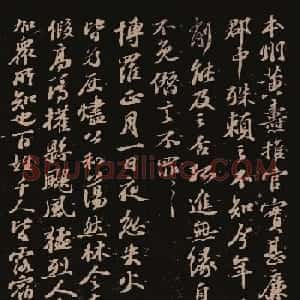 本州黄燾推官實甚廉
郡中殊頼之不知今年
削能及之否孤進無緣自
不免僭言不罪々
博羅正月一日夜忽失火
皆為灰燼公私蕩然林令在
假高簿權縣颶風猛烈人
衆所知也百姓千人皆露宿
Shufaziliao.com